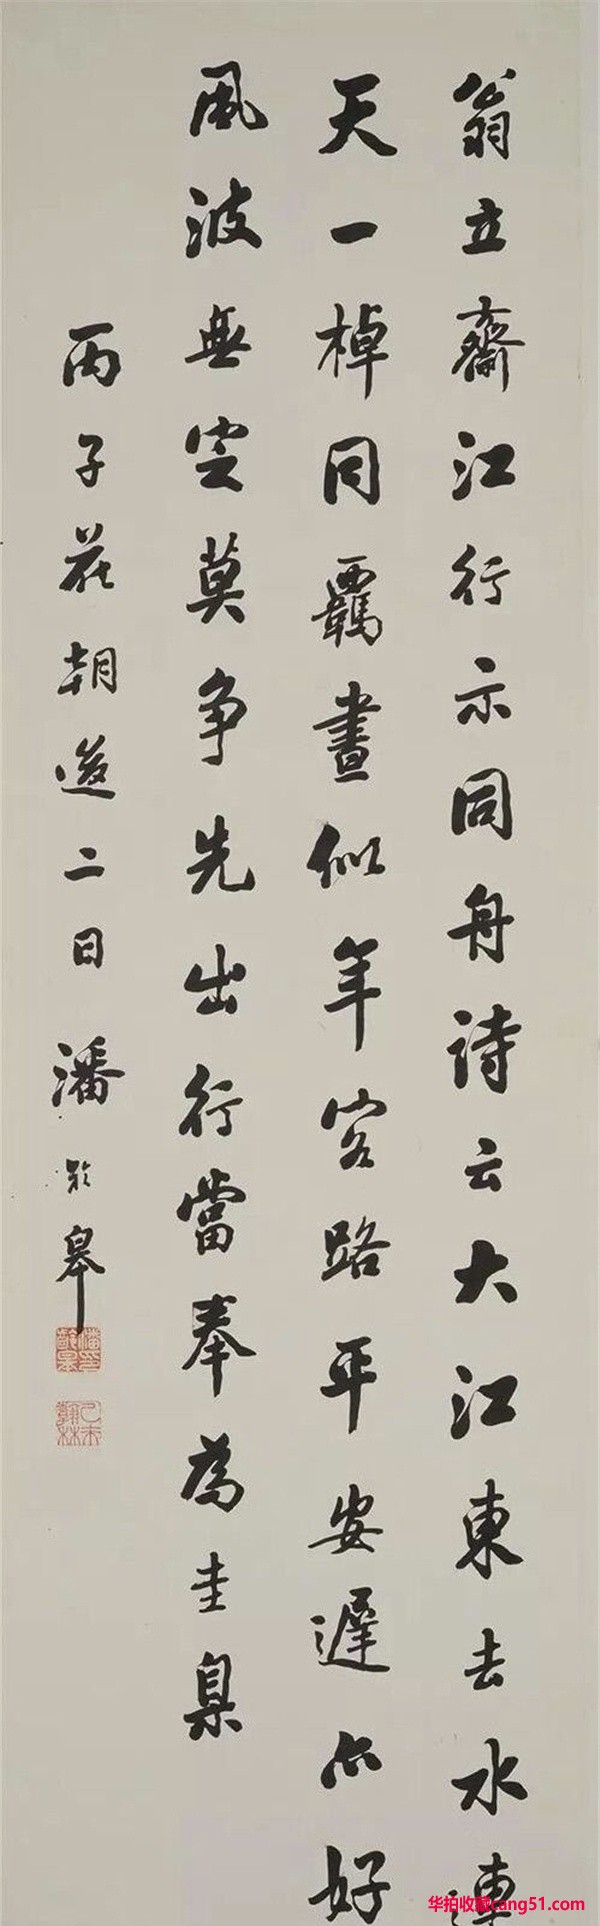 翁立齋江行示同舟詩云大江東去水連
天一棹同羈晝似年客路平安遲亦好
風波無定莫爭先出行當奉為圭臬
丙子花朝後二日潘齡皋
潘印齡皋
乙未翰林
华拍收藏cang51.com